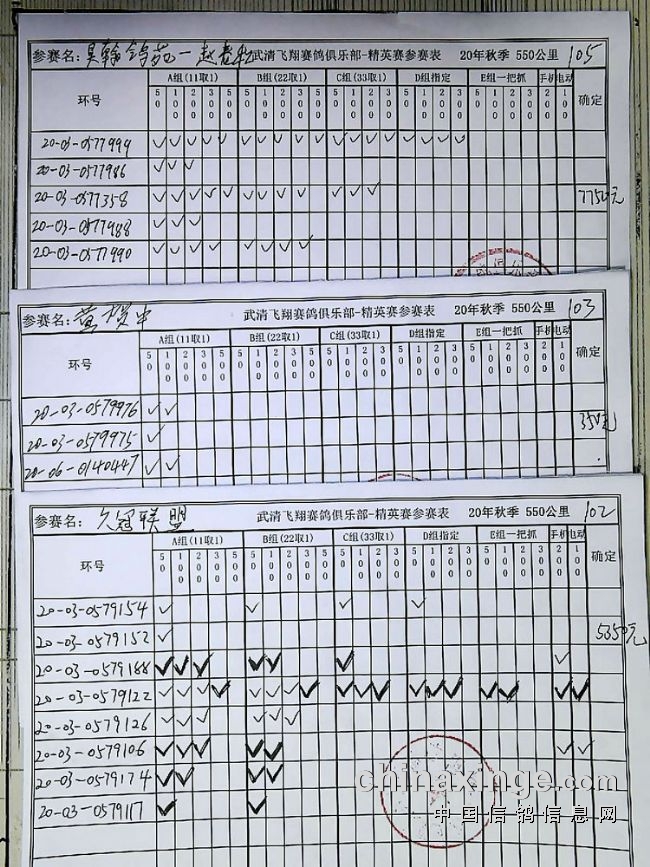 参赛名: 昊翰鸽苑-赵 武清飞翔赛鸽俱乐部-精英赛参赛表 20年秋季 550公里 105
环号 A组(11取1) B组(22取1) C组(33取1) D组指定 E组一把抓 手机 电动 确定
50 100 200 300 500 50 100 200 300 500 50 100 200 300 500 50 100 200 300 50 100 200 300 200 100
20-03-0577999 ✓ ✓ ✓ ✓ ✓ ✓ ✓ ✓ ✓ ✓ ✓ ✓ ✓ ✓ ✓ ✓ ✓ ✓
20-03-0577986 ✓ ✓ ✓
20-03-0577358 ✓ ✓ ✓ ✓ ✓ ✓ ✓ ✓ ✓ ✓ ✓ ✓ 7750元
20-03-0577988 ✓ ✓ ✓
20-03-0577990 ✓ ✓ ✓ ✓ ✓ ✓ ✓ ✓
参赛名: 武清飞翔赛鸽俱乐部-精英赛参赛表 20年秋季 550公里 103
环号 A组(11取1) B组(22取1) C组(33取1) D组指定 E组一把抓 手机 电动 确定
20-03-0579976 ✓ ✓ 350元
20-03-0579975 ✓
20-06-0140447 ✓ ✓
参赛名: 久冠联盟 武清飞翔赛鸽俱乐部-精英赛参赛表 20年秋季 550公里 102
环号 A组(11取1) B组(22取1) C组(33取1) D组指定 E组一把抓 手机 电动 确定
20-03-0579154 ✓ ✓ ✓ ✓
20-03-0579152 ✓ 5350元
20-03-0579188 ✓ ✓ ✓ ✓ ✓ ✓ ✓
20-03-0579122 ✓ ✓ ✓ ✓ ✓ ✓ ✓ ✓ ✓ ✓ ✓ ✓ ✓ ✓ ✓ ✓ ✓ ✓
20-03-0579126 ✓ ✓ ✓ ✓ ✓ ✓
20-03-0579106 ✓ ✓ ✓ ✓ ✓ ✓ ✓
20-03-0579174 ✓ ✓ ✓ ✓
20-03-0579117 ✓ ✓
chinaxinge.com
中国信鸽信息网